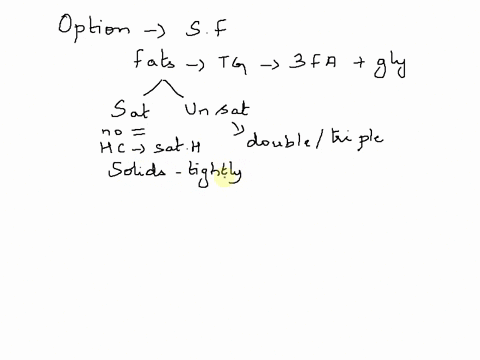 Option → S.F
fats → TG → 3FA + gly
Sat Unsat
no =
double/triple
HC → sat.H
Solids - tightly